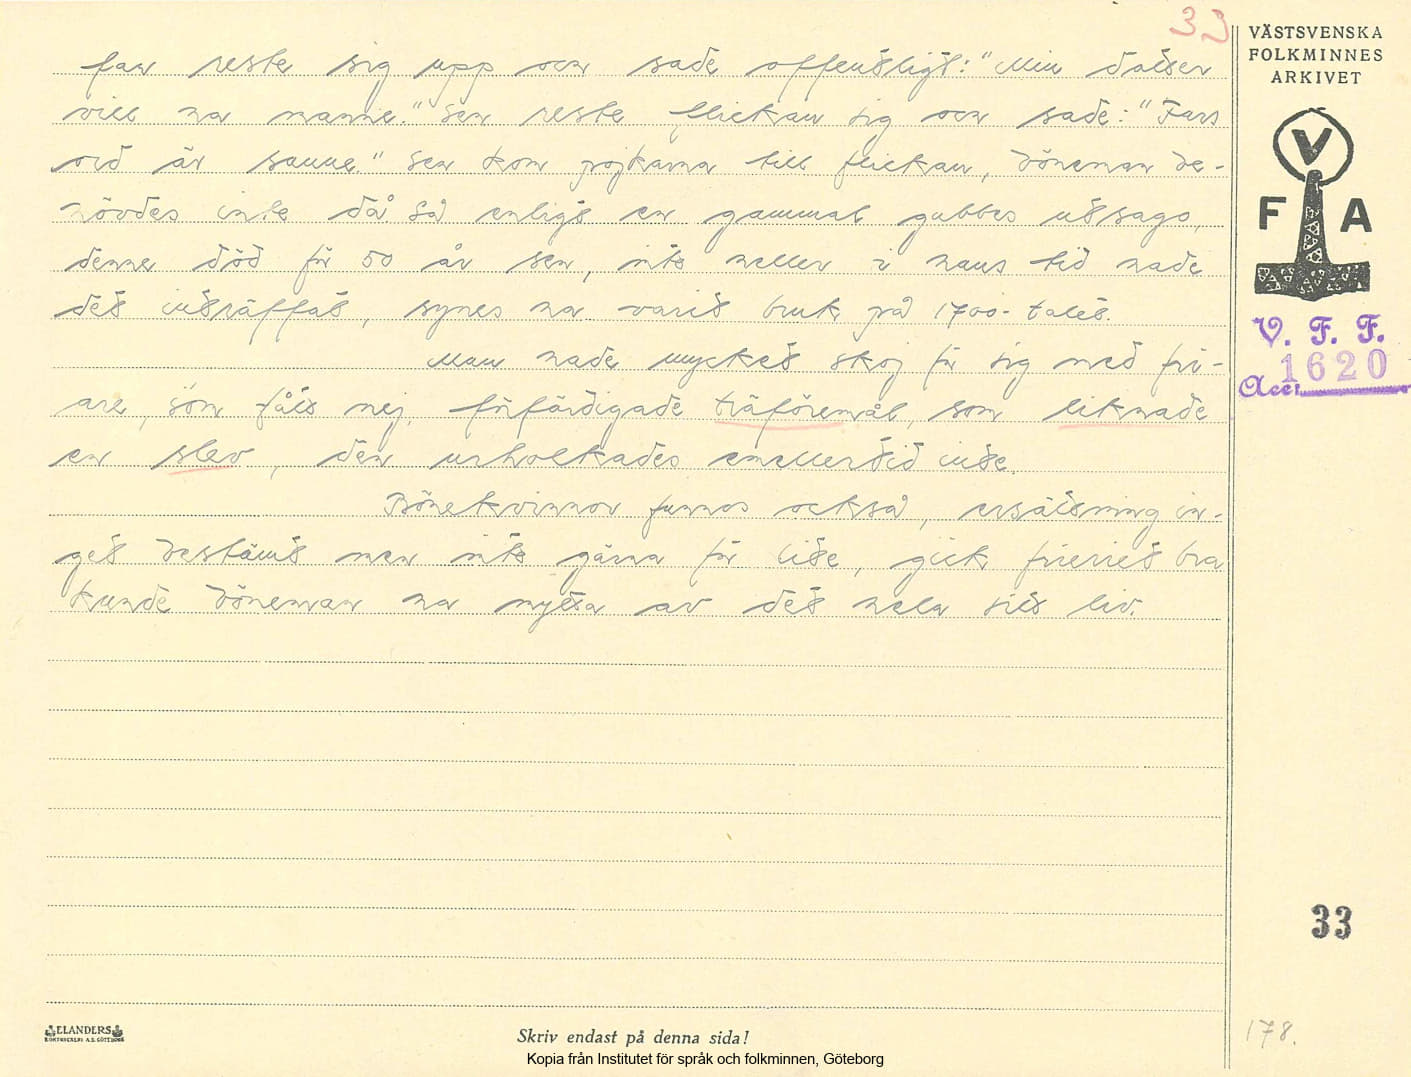 33
far reste sig upp och sade offentligt: "Min dotter
vill ha manne." Sen reste flickan sig och sade: "Fars
ord är sanne." Sen kom pojkarna till flickan, böneman be-
hövdes inte då så enligt en gammal gubbes utsago,
denne död för 50 år sen, inte heller i hans tid hade
det inträffat, synes ha varit bruk på 1700-talet.
Man hade mycket skoj för sig med fri-
are, som fått nej, förfärdigade träföremål, som liknade
en slev, den urholkades emellertid inte.
Bönekvinnor funnos också, ersättning in-
get bestämt men inte gärna för lite, gick frieriet bra
kunde böneman ha nytta av det hela sitt liv.
VÄSTSVENSKA
FOLKMINNES
ARKIVET
V
F A
V. F. F.
Acc. 1620
33
178.
ELANDERS
Skriv endast på denna sida!
Kopia från Institutet för språk och folkminnen, Göteborg